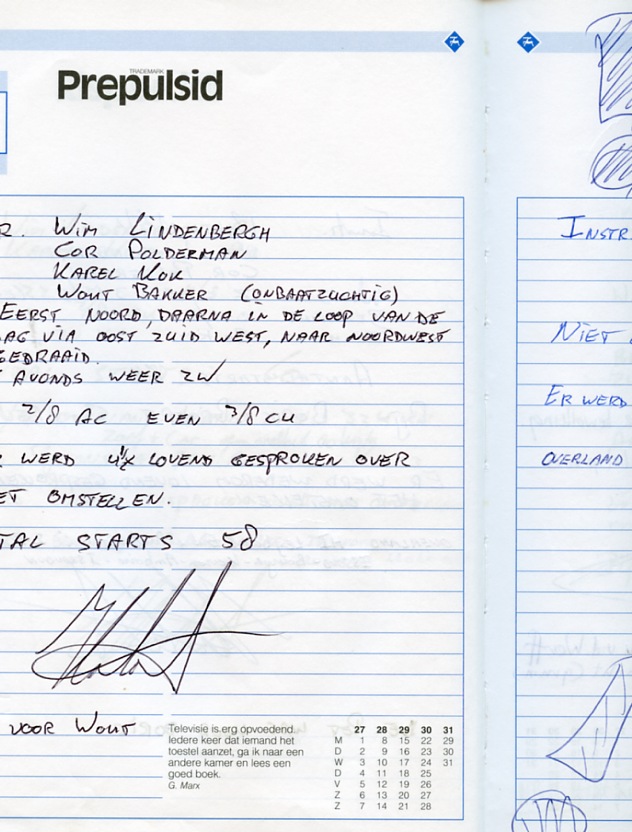 TRADEMARK
Prepulsid
R. WIM LINDENBERGH
COR POLDERMAN
KAREL KOK
WOUT BAKKER (ONBAATZUCHTIG)
EERST NOORD, DAARNA IN DE LOOP VAN DE
AG VIA OOST ZUID WEST, NAAR NOORDWEST
GEDRAAID.
AVONDS WEER ZW
2/8 AC EVEN 3/8 CU
WERD 4x LOVEND GESPROKEN OVER
ET OMSTELLEN.
TAL STARTS 58
VOOR WOUT
Televisie is erg opvoedend.
Iedere keer dat iemand het
toestel aanzet, ga ik naar een
andere kamer en lees een
goed boek.
G. Marx
27 28 29 30 31
M 1 8 15 22 29
D 2 9 16 23 30
W 3 10 17 24 31
D 4 11 18 25
V 5 12 19 26
Z 6 13 20 27
Z 7 14 21 28
INSTR
NIET
ER WERD
OVERLAND